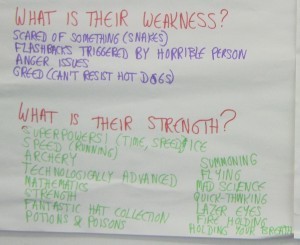 WHAT IS THEIR WEAKNESS?
SCARED OF SOMETHING (SNAKES)
FLASHBACKS TRIGGERED BY HORRIBLE PERSON
ANGER ISSUES
GREED (CAN'T RESIST HOT DOGS)
WHAT IS THEIR STRENGTH?
SUPERPOWERS! (TIME, SPEED, ICE
SPEED (RUNNING)
ARCHERY
TECHNOLOGICALLY ADVANCED
MATHEMATICS
STRENGTH
FANTASTIC HAT COLLECTION
POTIONS & POISONS
SUMMONING
FLYING
MAD SCIENCE
QUICK-THINKING
LAZER EYES
FIRE HOLDING
HOLDING YOUR BREATH